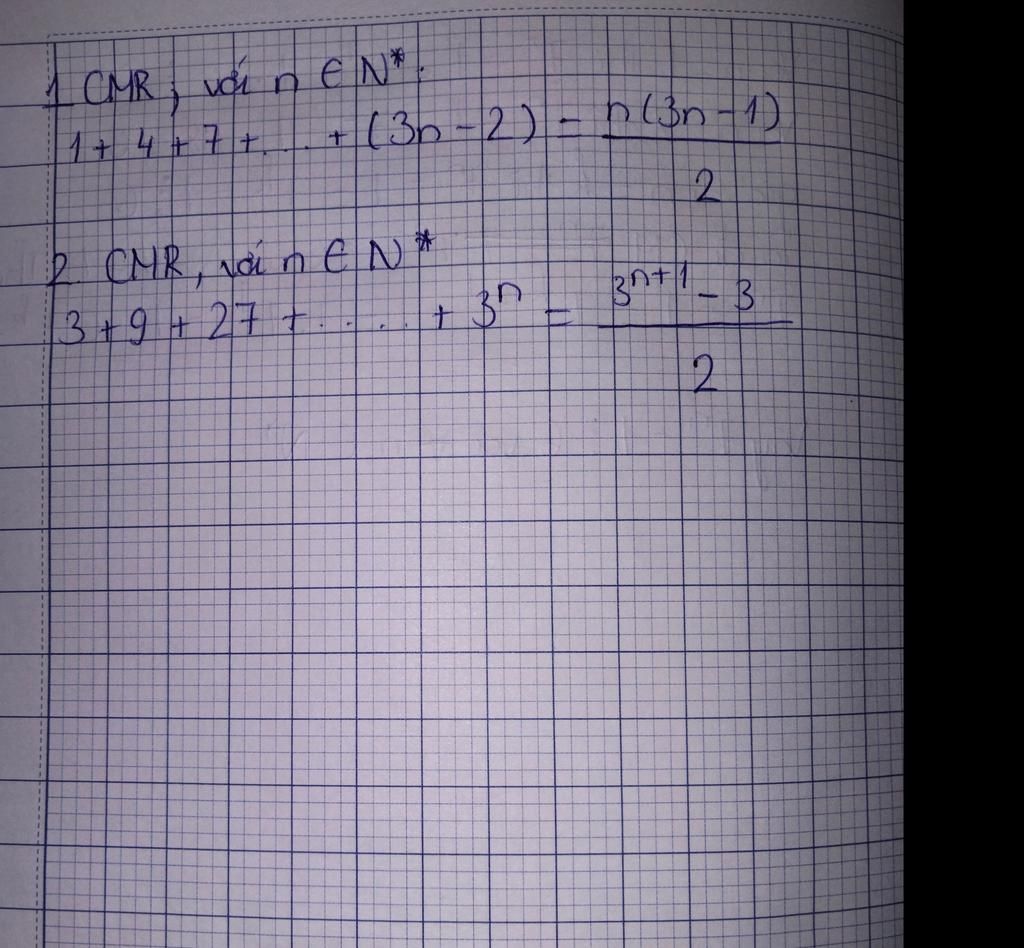 1 CMR, với n ∈ N*.
1 + 4 + 7 + .... + (3n - 2) = n(3n - 1) / 2
2 CMR, với n ∈ N*
3 + 9 + 27 + ..... + 3^n = 3^(n+1) - 3 / 2